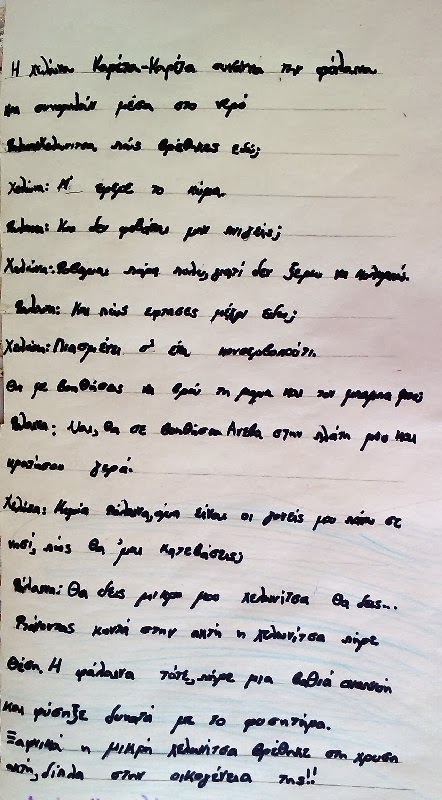 Η χελώνα Καρέτα-Καρέτα συναντα την φάλαινα
και συνομιλούν μέσα στο νερό
Φάλαινα: Χελωνιτσα, πώς βρέθηκες εδώ;
Χελώνα: Μ' έφερε το κύμα.
Φάλαινα: Και δεν φοβάσαι μην πνιγείς;
Χελώνα: Φοβαμαι πάρα πολυ, γιατί δεν ξερω να κολυμπώ.
Φάλαινα: Και πώς εφτασες μέχρι εδώ;
Χελώνα: Πιασμένη σ' ένα κονσερβοκούτι.
Θα με βοηθήσεις να βρω τη μαμα και τον μπαμπα μου;
Φάλαινα: Ναι, θα σε βοηθήσω. Ανεβα στην πλάτη μου και
κρατήσου γερά.
Χελώνα: Κυρία Φάλαινα, όμα είναι οι γονείς μου πάνω σε
νησί, πώς θα με κατεβάσεις;
Φάλαινα: Θα δεις μικρη μου χελωνίτσα θα δεις...
Φτάνοντας κοντά στην ακτή η χελωνίτσα πήρε
θέση. Η φάλαινα τότε, πήρε μια βαθιά αναπνοή
και φύσηξε δυνατά με το φυσητήρα.
Ξαφνικά η μικρή χελωνίτσα βρέθηκε στη χρυση
ακτή, δίπλα στην οικογένεια της!!